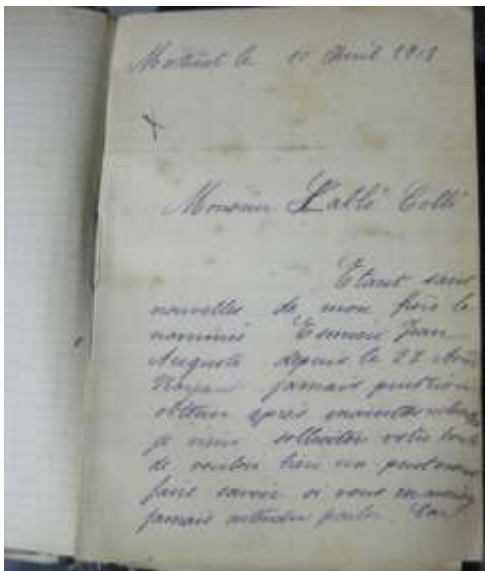 le 11 Avril 1918
Monsieur L'abbé Collé
Étant sans
nouvelles de mon frère le
nommé Jean
Auguste depuis le 22 Août
N'ayant jamais pu rien
obtenir après maintes recherches
je viens solliciter votre bonté
de vouloir bien
faire savoir si vous n'auriez
jamais entendu parler. Car